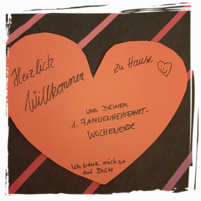 Herzlich
Willkommen
zu Hause
und deinem
1. Familienheimfahrt-
Wochenende
Ich freue mich so
auf Dich